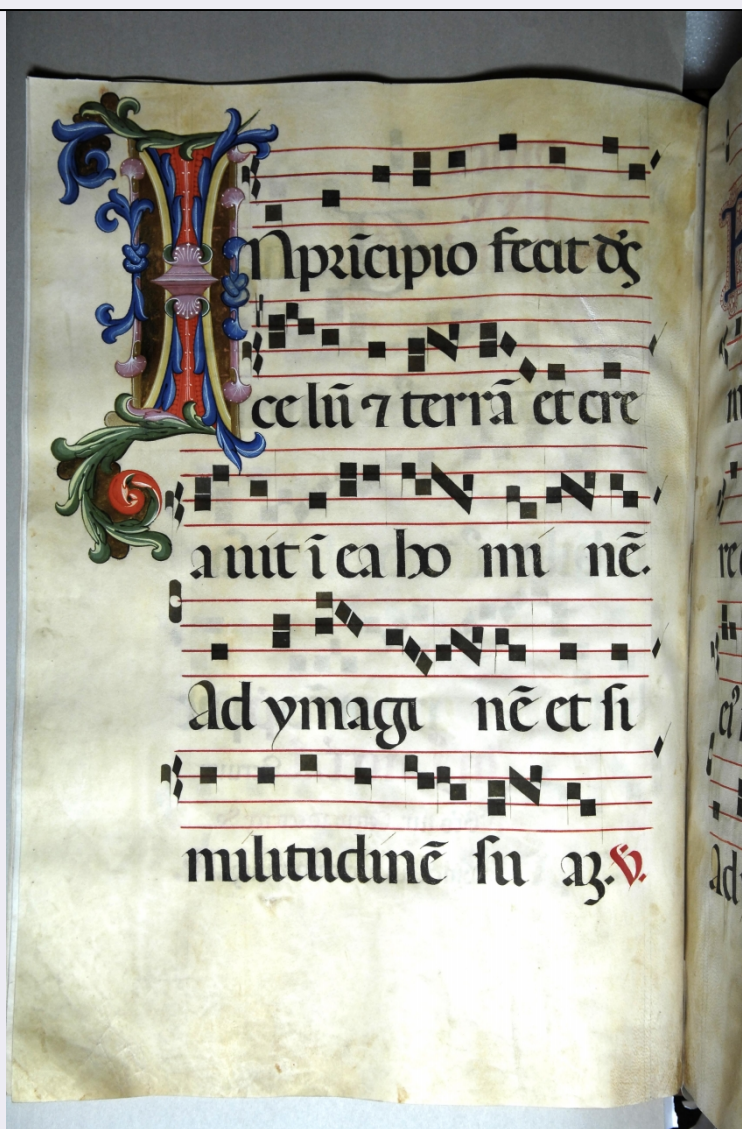 INprīcipio fecit dʒ
celū ⁊ terrā et cre
auit ī ea ho mi nē.
Ad ymagi nē et si
militudinē su aʒ. V.